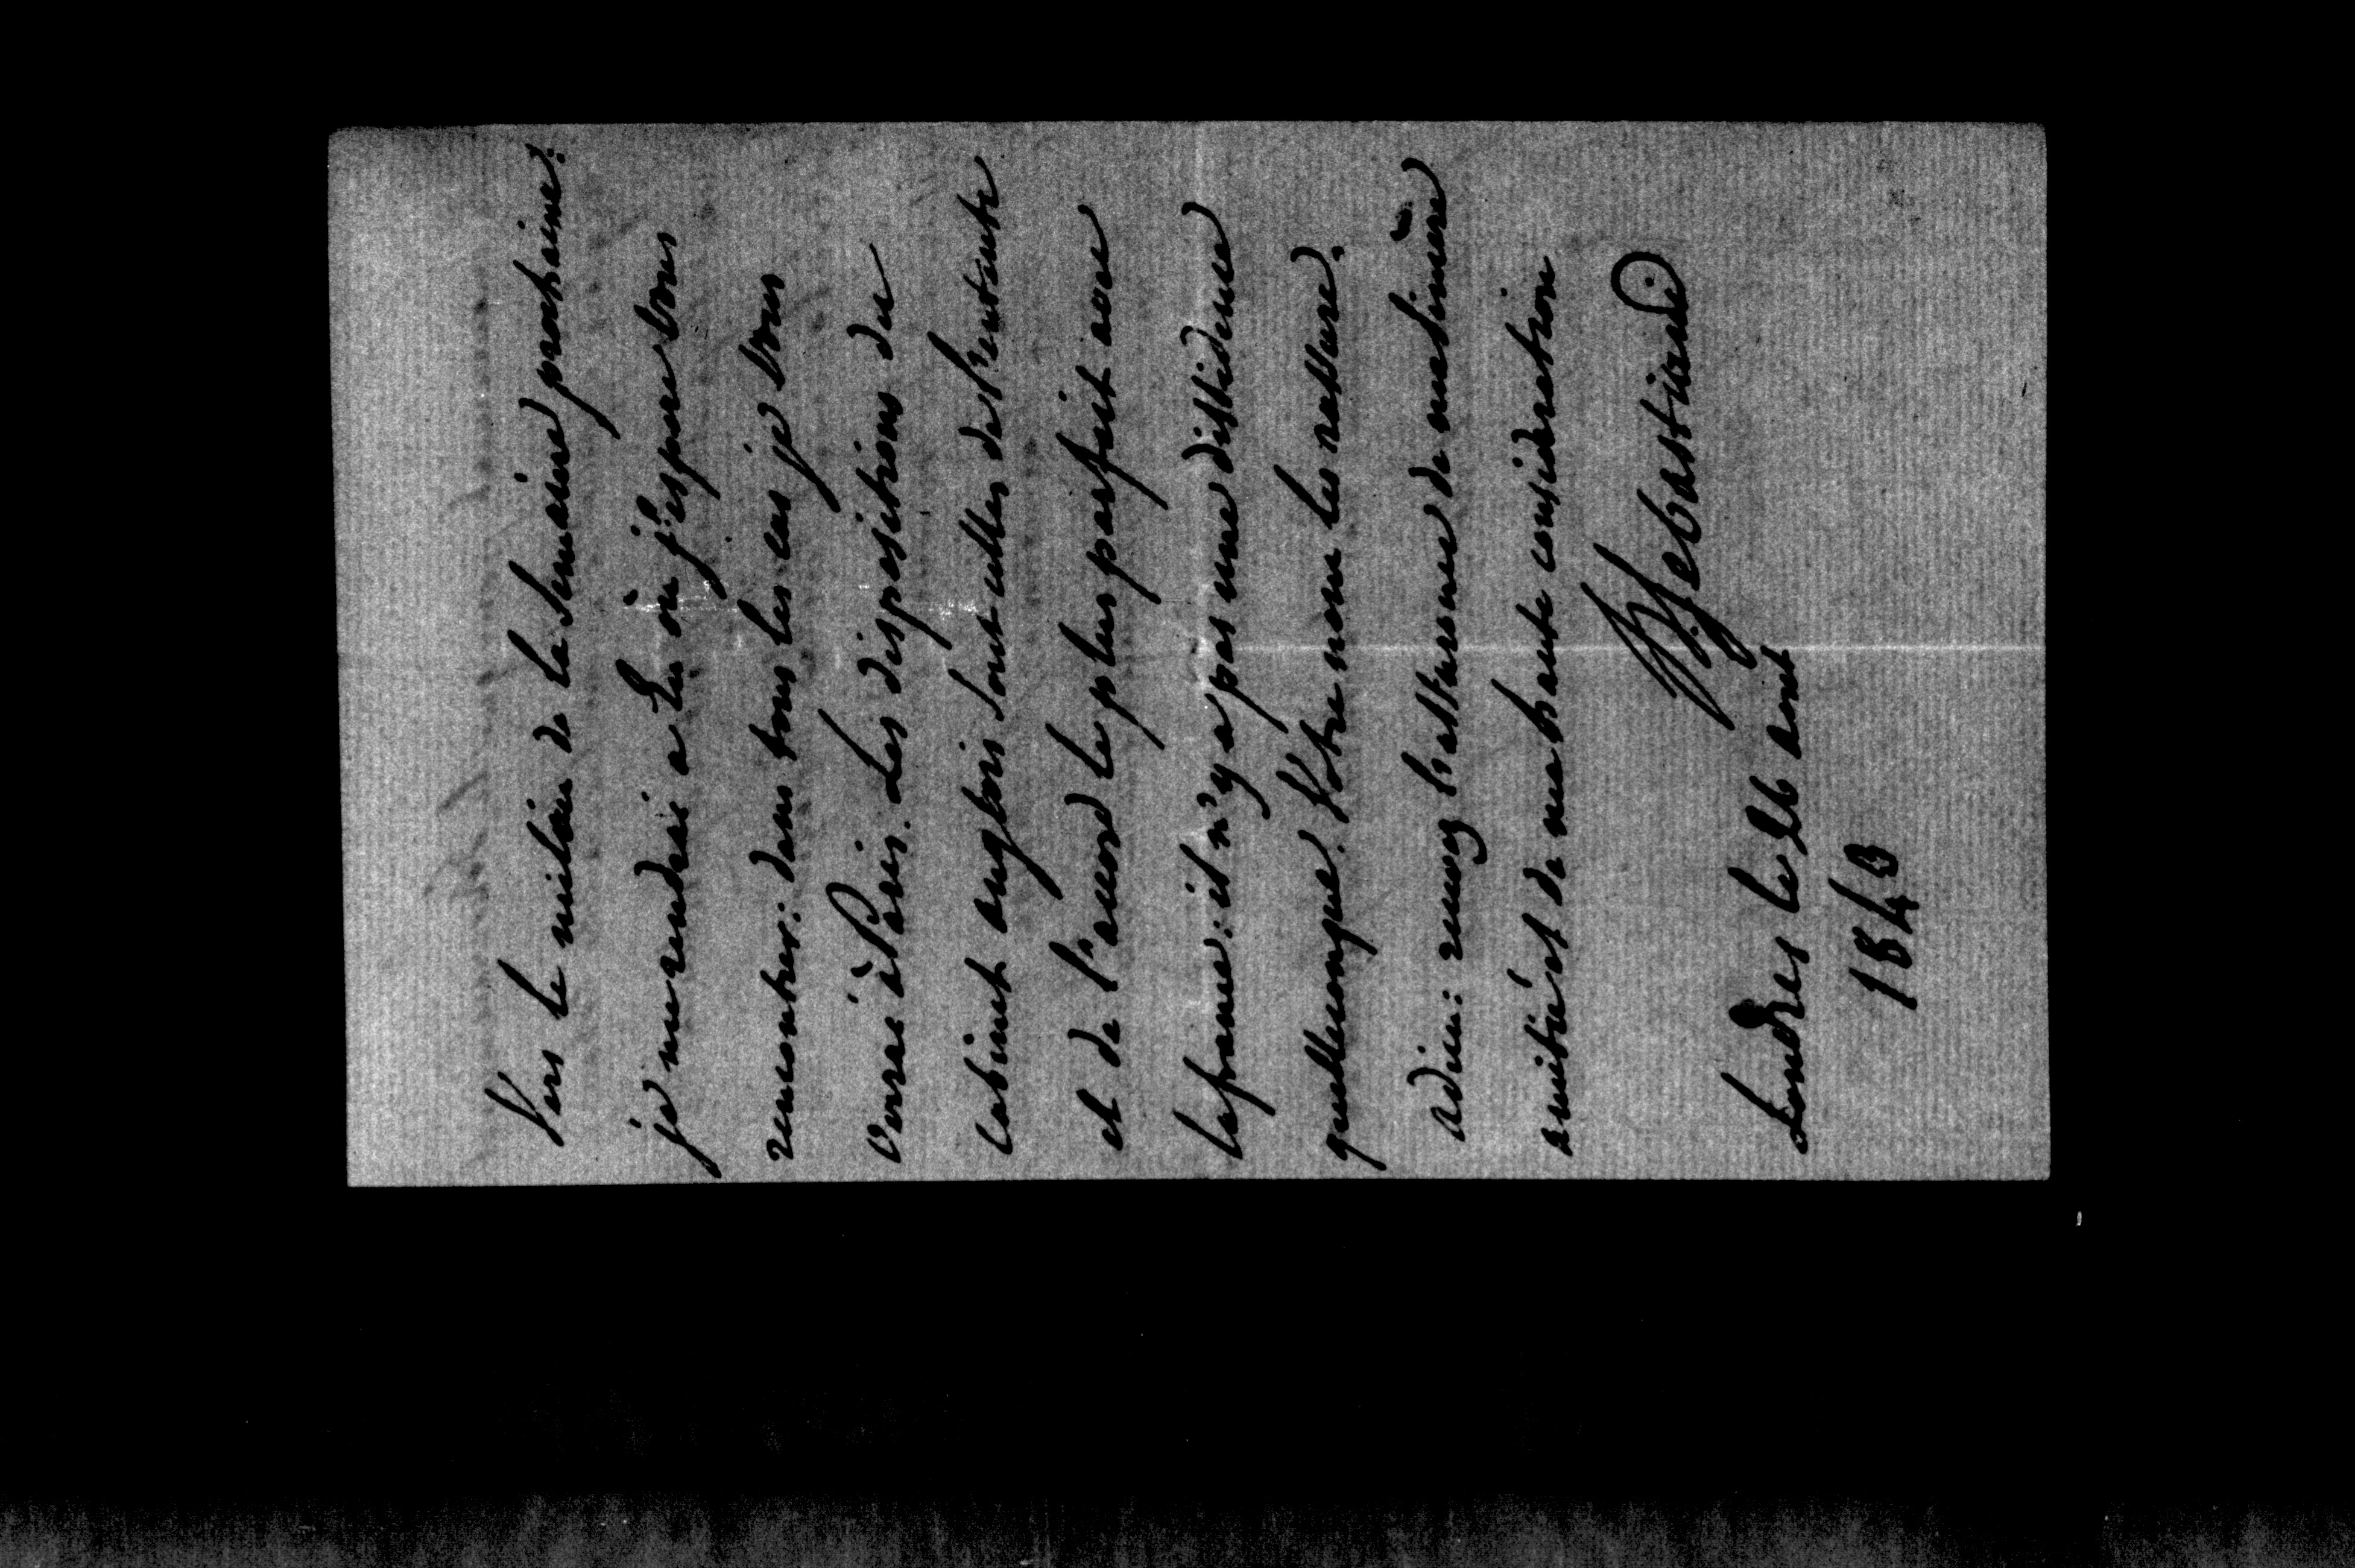 Vers le milieu de la semaine prochaine
je me rendrai a Eu où j'espere vous
rencontrer: dans tous les cas je vous
verrai à Paris. Les dispositions du
cabinet anglois sont celles de l'entente
et de l'accord le plus parfait avec
la france: il n'y a pas une dissidence
quelleconque. Votre nom les rassure.
adieu: recevez l'assurance de ma sincère
amitié et de ma haute consideration
Sebastiani
Londres le 26 aout
1843